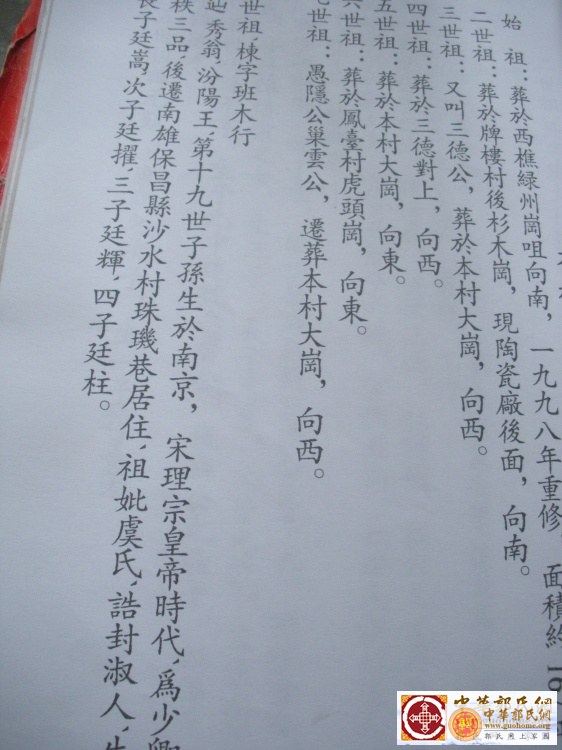 始 祖：葬於西樵綠州崗咀向南，一九九八年重修，面積約 167
二世祖：葬於牌樓村後杉木崗，現陶瓷廠後面，向南。
三世祖：又叫三德公，葬於本村大崗，向西。
四世祖：葬於三德對上，向西。
五世祖：葬於本村大崗，向東。
六世祖：葬於鳳臺村虎頭崗，向東。
七世祖：愚隱公巢雲公，遷葬本村大崗，向西。
世祖，棟字班木行
秀翁，汾陽王，第十九世子孫生於南京，宋理宗皇帝時代，爲少卿
秩三品，後遷南雄保昌縣沙水村珠璣巷居住，祖妣虞氏，誥封淑人，生
長子廷嵩，次子廷擢，三子廷輝，四子廷柱。
中華郭氏網
www.guohome.org
郭氏網上家園